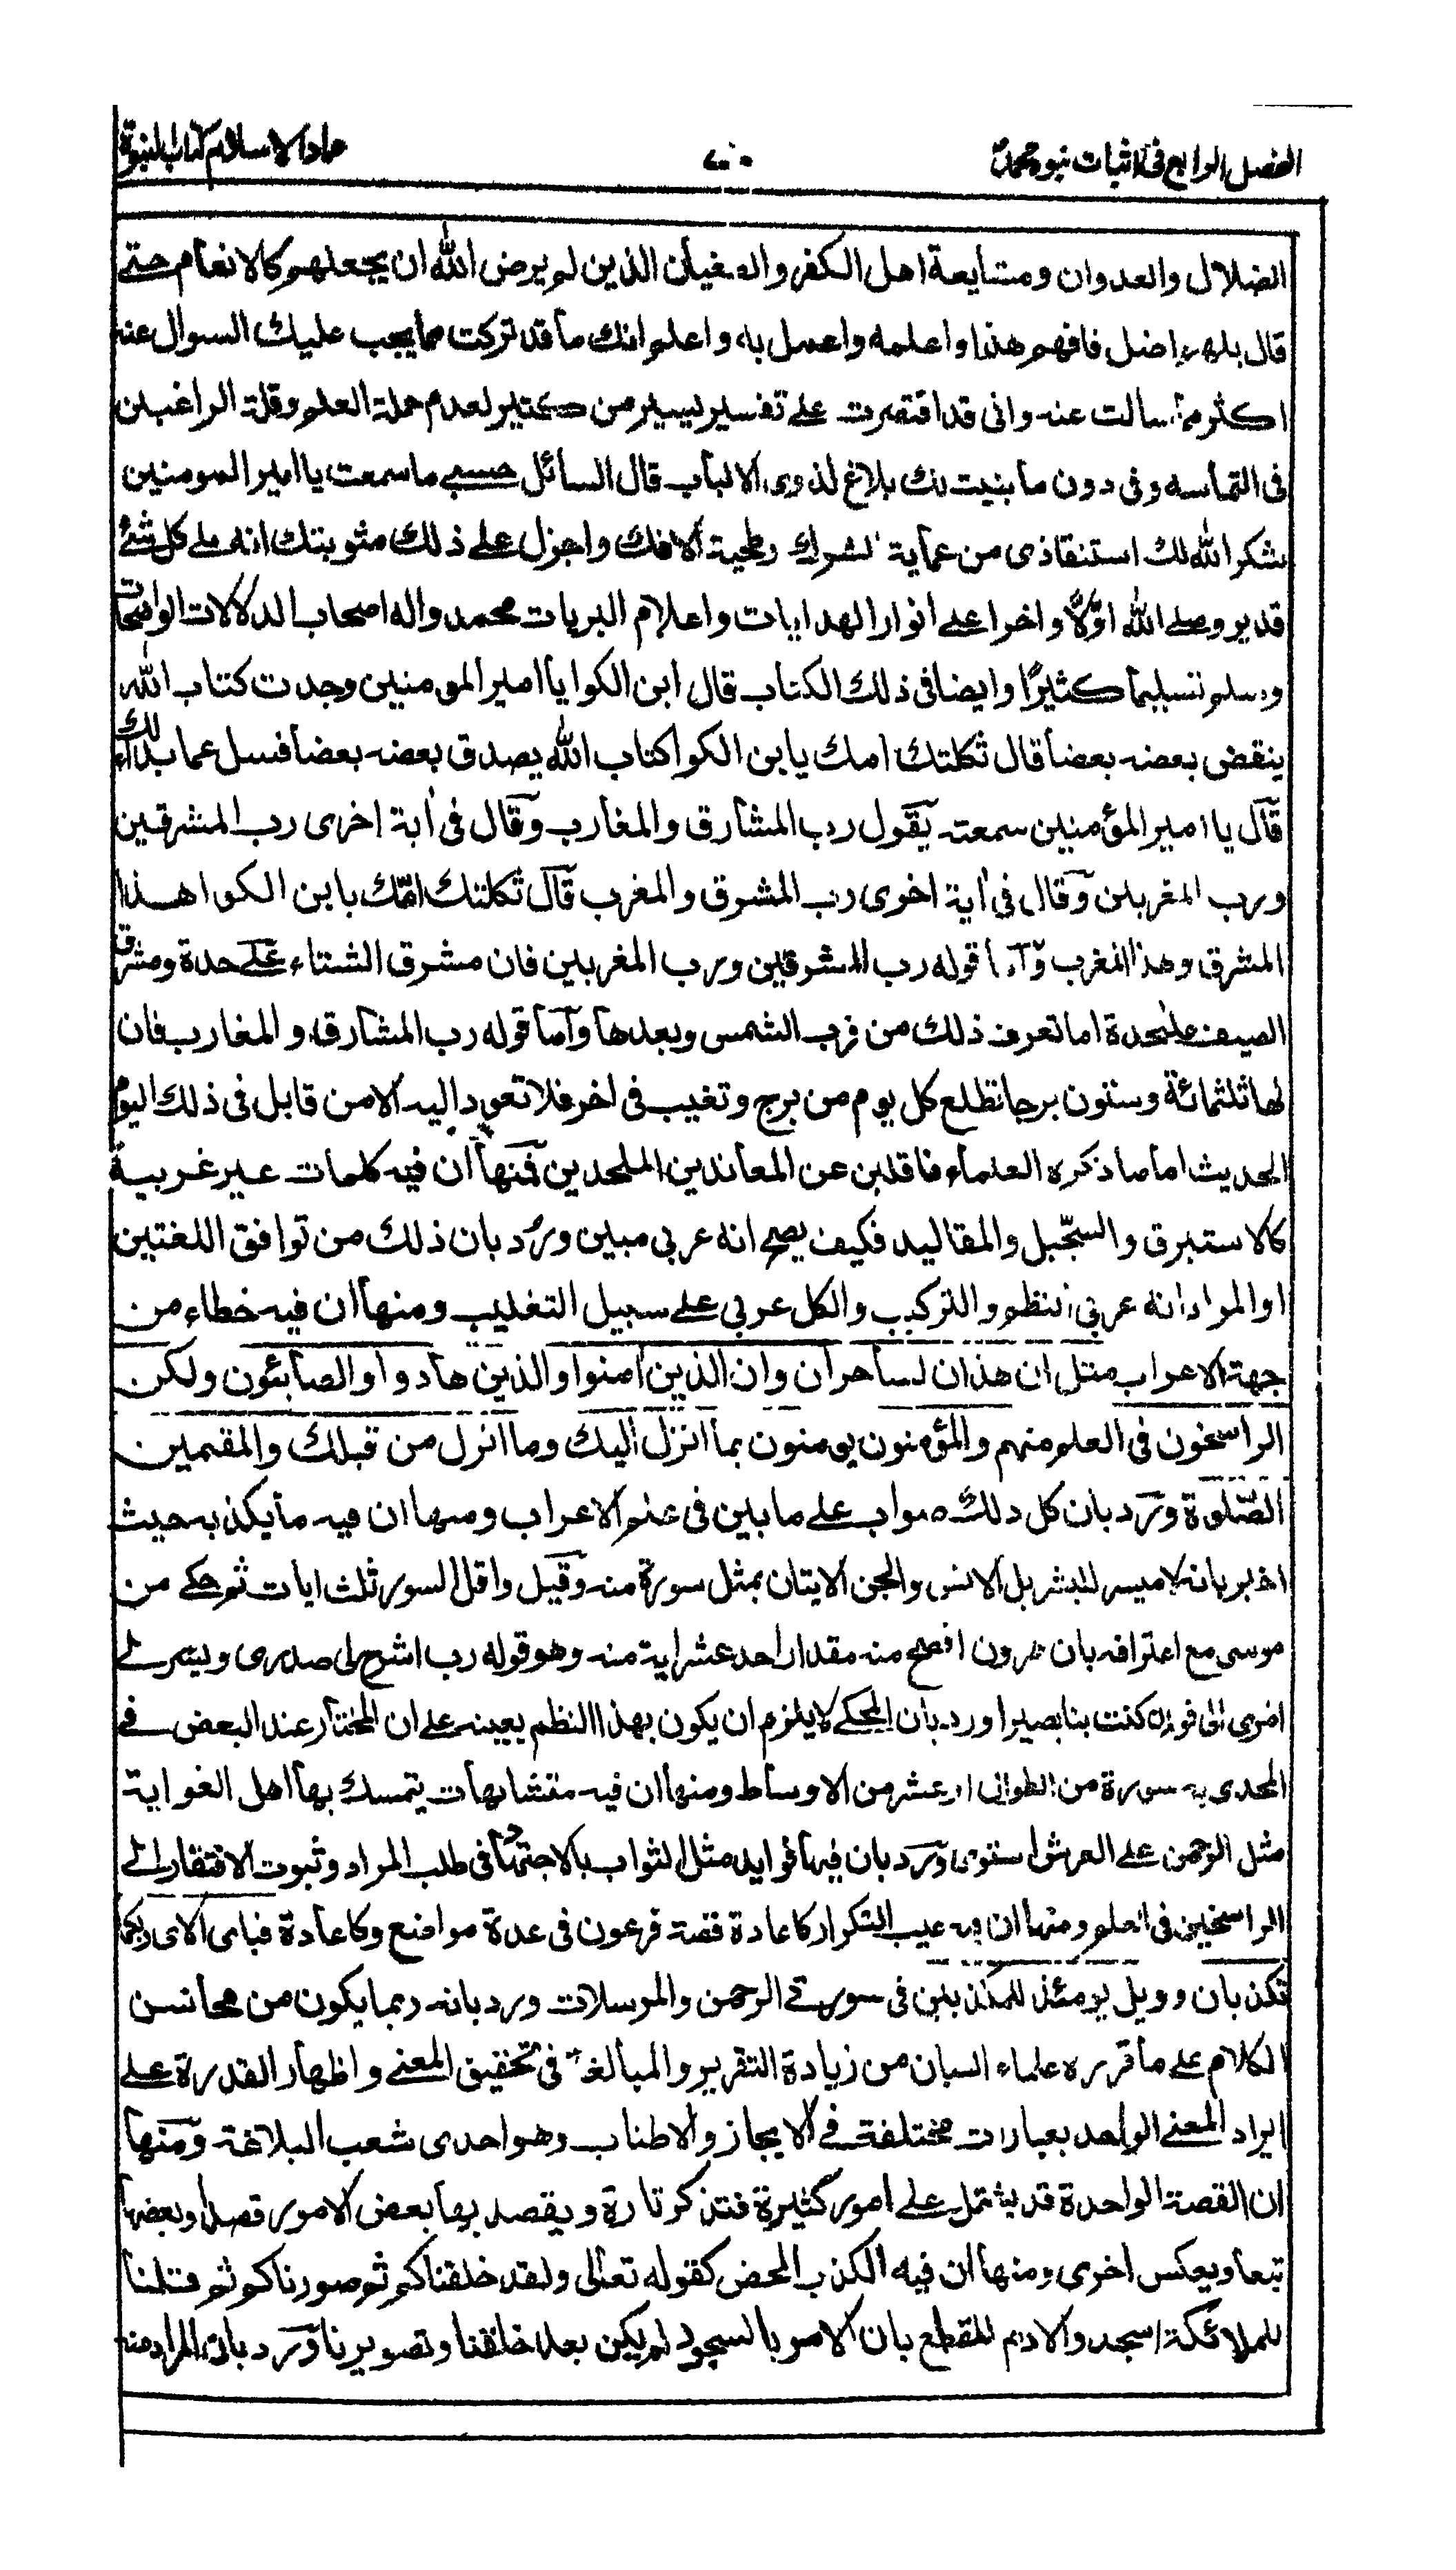 الفصل الرابع فى اثبات نبوة محمد
عماد الاسلام كتاب النبوة
الضلال والعدوان ومتابعة اهل الكفر والطغيان الذين لم يرض الله ان يجعلهم كالانعام حتى
قال بل هم اضل فافهم هذا واعلمه واعمل به واعلم انك ما قد تركت مما يجب عليك السوال عنه
اكثر مما سالت عنه وانى قد اقتصرت على تفسير يسير من كثير لعدم حملة العلم وقلة الراغبين
فى التماسه وفى دون ما بنيت لك بلاغ لذوى الالباب قال السائل حسبى ما سمعت يا امير المومنين
شكر الله لك استنقاذى من عماية الشرك وطخية الافك واجزل على ذلك مثوبتك انه على كل شئ
قدير وصلى الله اوّلًا واخرا على انوار الهدايات واعلام البريات محمد واله اصحاب الدلالات الواضحات
وسلم تسليما كثيرًا وايضا فى ذلك الكتاب قال ابن الكوا يا امير المومنين وجدت كتاب الله
ينقض بعضه بعضا قال ثكلتك امك يا بن الكوا كتاب الله يصدق بعضه بعضا فسل عما بدا لك
قال يا امير المؤمنين سمعته يقول رب المشارق والمغارب وقال فى اية اخرى رب المشرقين
ورب المغربين وقال فى اية اخرى رب المشرق والمغرب قال ثكلتك امّك يا بن الكوا هذا
المشرق وهذا المغرب وامّا قوله رب المشرقين ورب المغربين فان مشرق الشتاء على حدة ومشرق
الصيف على حدة اما تعرف ذلك من قرب الشمس وبعدها وامّا قوله رب المشارق والمغارب فان
لها ثلثمائة وستون برجا تطلع كل يوم من برج وتغيب فى اخر فلا تعود اليه الا من قابل فى ذلك اليوم
الحديث اما ما ذكره العلماء فاقلين عن المعاندين الملحدين فمنها ان فيه كلمات غير عربية
كالاستبرق والسجّيل والمقاليد فكيف يصح انه عربى مبين ورُد بان ذلك من توافق اللغتين
او المراد انه عربى النظم والتركيب والكل عربى على سبيل التغليب ومنها ان فيه خطاء من
جهة الاعراب مثل ان هذان لساحران وان الذين امنوا والذين هادوا والصابئون ولكن
الراسخون فى العلم منهم والمؤمنون يومنون بما انزل اليك وما انزل من قبلك والمقيمين
الصّلوة ورُد بان كل ذلك صواب على ما بين فى علم الاعراب ومنها ان فيه ما يكذبه حيث
اخبر بانه لا ميسر للبشر بل الانس والجن الايتان بمثل سورة منه وقيل واقل السور ثلث ايات ثم حكى من
موسى مع اعترافه بان هرون افصح منه مقدار احد عشر اية منه وهو قوله رب اشرح لى صدرى ويسر لى
امرى الى قوله كنت بنا بصيرا ورد بان المحكى لا يلزم ان يكون بهذا النظم بعينه على ان المختار عند البعض فى
المحدى به سورة من الطوال او عشر من الاوساط ومنها ان فيه متشابهات يتمسك بها اهل الغواية
مثل الرحمن على العرش استوى ورُد بان فيها فوايد مثل الثواب بالاجتهاد فى طلب المراد وثبوت الافتقار الى
الراسخين فى العلم ومنها ان فيه عيب التكرار كاعادة قصة فرعون فى عدة مواضع وكاعادة فباى الاء ربكما
تكذبان وويل يومئذ للمكذبين فى سورتى الرحمن والمرسلات ورد بانه ربما يكون من محاسن
الكلام على ما قرره علماء البيان من زيادة التقرير والمبالغة فى تحقيق المعنى واظهار القدرة على
ايراد المعنى الواحد بعبارات مختلفة فى الايجاز والاطناب وهو احدى شعب البلاغة ومنها
ان القصة الواحدة قد يشتمل على امور كثيرة فتذكر تارة ويقصد بها بعض الامور قصدا وبعضها
تبعا ويعكس اخرى ومنها ان فيه الكذب المحض كقوله تعالى ولقد خلقناكم ثم صورناكم ثم قلنا
للملائكة اسجدوا لادم للقطع بان الامر بالسجود لم يكن بعد خلقنا وتصويرنا ورُد بان المراد منه